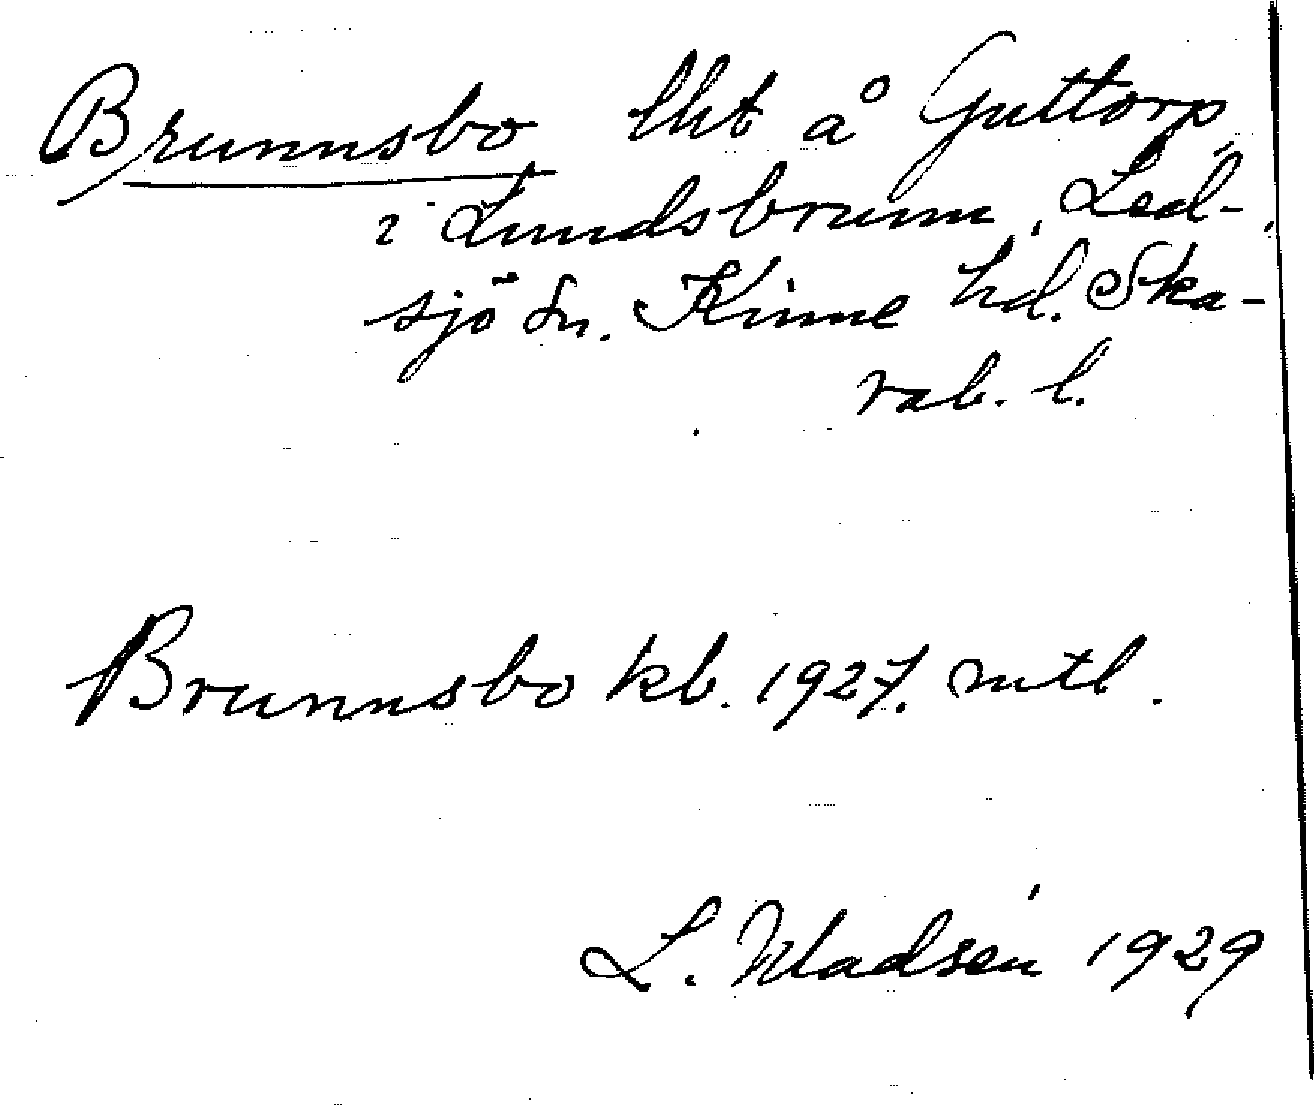 Brunnsbo lht å Guttorp
i Lundsbrunn, Led-
sjö sn. Kinne hd. Ska-
rab. l.
Brunnsbo kb. 1927. mtl.
L. Madsén 1929